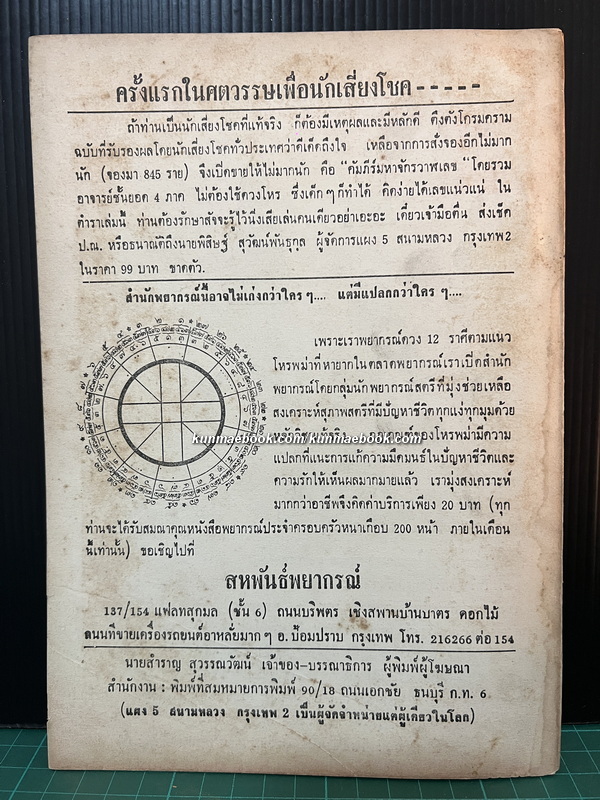 ครั้งแรกในศตวรรษเพื่อนักเสี่ยงโชค -----
ถ้าท่านเป็นนักเสี่ยงโชคที่แท้จริง ก็ต้องมีเหตุผลและมีหลักดี ดึงดังโกรมคราม
ฉบับที่รับรองผลโดยนักเสี่ยงโชคทั่วประเทศว่าดีเด็ดถึงใจ เหลือจากการสั่งจองอีกไม่มาก
นัก (จองมา 845 ราย) จึงเปิดขายให้ไม่มากนัก คือ "คัมภีร์มหาจักรวาฬเลข" โดยรวม
อาจารย์ชั้นยอด 4 ภาค ไม่ต้องใช้ดวงโหร ซึ่งเด็กๆก็ทำได้ คิดง่ายได้เลขแน่วแน่ ใน
ตำราเล่มนี้ ท่านต้องรักษาสัจจะรู้ไว้นิ่งเสียเล่นคนเดียวอย่าเอะอะ เดี๋ยวเจ้ามือตื่น ส่งเช็ค
ป.ณ. หรือธนาณัติถึงนายพิสิษฐ์ สุวัฒน์พันธุกุล ผู้จัดการแผง 5 สนามหลวง กรุงเทพ2
ในราคา 99 บาท ขาดตัว.
สำนักพยากรณ์นี้อาจไม่เก่งกว่าใคร ๆ.... แต่มีแปลกกว่าใคร ๆ....
เพราะเราพยากรณ์ดวง 12 ราศีตามแนว
โหรพม่าที่หายากในตลาดพยากรณ์เราเปิดสำนัก
พยากรณ์โดยกลุ่มนักพยากรณ์สตรีที่มุ่งช่วยเหลือ
สงเคราะห์สุภาพสตรีที่มีปัญหาชีวิตทุกแง่ทุกมุมด้วย
ของโหรพม่ามีความ
kunmaebook.com/kunmaebook.com
แปลกที่แนะการแก้ความมืดมนธ์ในปัญหาชีวิตและ
ความรักให้เห็นผลมากมายแล้ว เรามุ่งสงเคราะห์
มากกว่าอาชีพจึงคิดค่าบริการเพียง 20 บาท (ทุก
ท่านจะได้รับสมณาคุณหนังสือพยากรณ์ประจำครอบครัวหนาเกือบ 200 หน้า ภายในเดือน
นี้เท่านั้น) ขอเชิญไปที่
สหพันธ์พยากรณ์
137/154 แฟลทสุกมล (ชั้น 6) ถนนบริพตร เชิงสพานบ้านบาตร ดอกไม้
ถนนที่ขายเครื่องรถยนต์อาหลั่ยมากๆ อ. ป้อมปราบ กรุงเทพ โทร. 216266 ต่อ 154
นายสำราญ สุวรรณวัฒน์ เจ้าของ-บรรณาธิการ ผู้พิมพ์ผู้โฆษณา
สำนักงาน : พิมพ์ที่สมหมายการพิมพ์ 90/18 ถนนเอกชัย ธนบุรี ก.ท. 6
(แผง 5 สนามหลวง กรุงเทพ 2 เป็นผู้จัดจำหน่ายแต่ผู้เดียวในโลก)